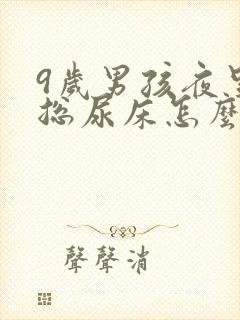 9歲男孩夜里
總尿床怎麼
聲聲消